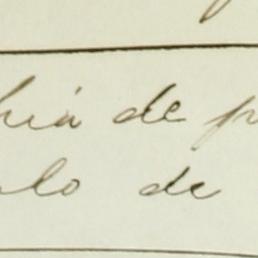 hia de p
lo de